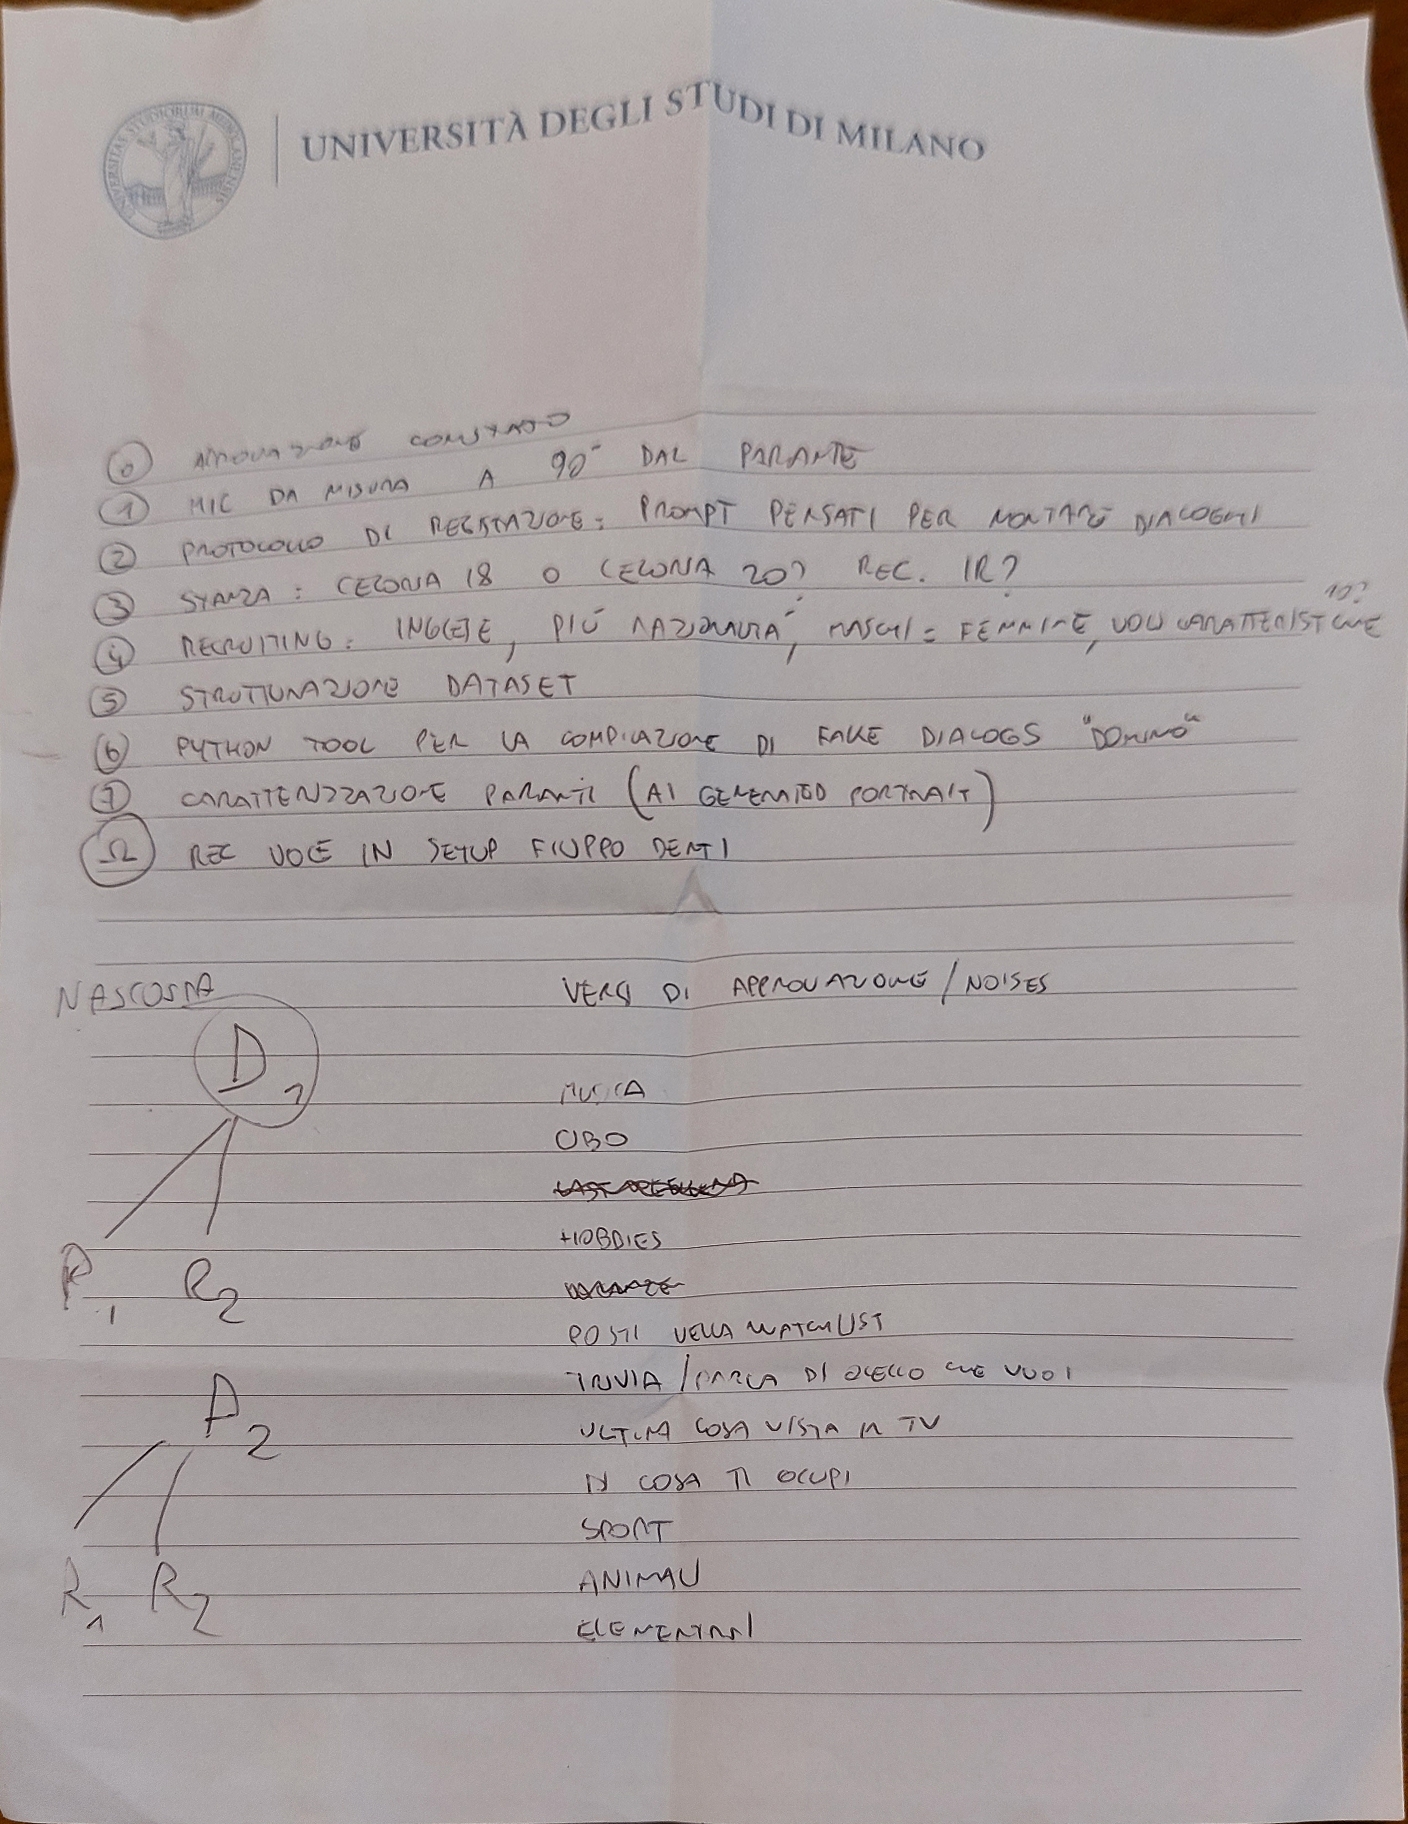 UNIVERSITÀ DEGLI STUDI DI MILANO
0 APPROVAZIONE COMITATO
1 MIC DA MISURA A 90° DAL PARLANTE
2 PROTOCOLLO DI REGISTRAZIONE: PROMPT PENSATI PER MONTARE DIALOGHI
3 STANZA: CELORIA 18 O CELORIA 20? REC. IR?
10?
4 RECRUITING: INGLESE, PIÙ NAZIONALITÀ, MASCHI = FEMMINE, VOCI CARATTERISTICHE
5 STRUTTURAZIONE DATASET
6 PYTHON TOOL PER LA COMPILAZIONE DI FAKE DIALOGS "DOMINO"
7 CARATTERIZZAZIONE PARLANTI (AI GENERATED PORTRAIT)
Ω REC VOCE IN SETUP FILIPPO DENTI
NASCOSTA
VERSI DI APPROVAZIONE / NOISES
D1
MUSICA
CIBO
HOBBIES
R1 R2
POSTI NELLA WATCHLIST
TRIVIA / PARLA DI QUELLO CHE VUOI
D2
ULTIMA COSA VISTA IN TV
DI COSA TI OCCUPI
SPORT
R1 R2
ANIMALI
ELEMENTARI